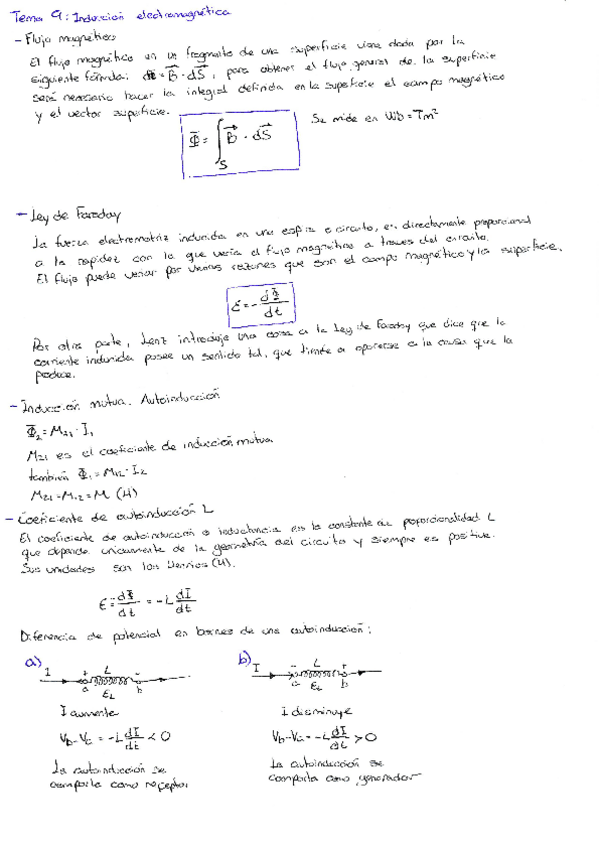 Tema 9: Inducción electromagnética
- Flujo magnético
El flujo magnético en un fragmento de una superficie viene dada por la
siguiente fórmula: dΦ = B⃗ · dS⃗, para obtener el flujo general de la superficie
será necesario hacer la integral definida en la superficie el campo magnético
y el vector superficie.
Φ = ∫S B⃗ · dS⃗
Se mide en Wb = Tm²
- Ley de Faraday
La fuerza electromotriz inducida en una espira o circuito, es directamente proporcional
a la rapidez con la que varía el flujo magnético a traves del circuito.
El flujo puede variar por varias razones que son el campo magnético y la superficie.
ε = - dΦ/dt
Por otra parte, Lenz introduje una cosa a la Ley de Faraday que dice que la
corriente inducida posee un sentido tal, que tiende a oponerse a la causa que la
produce.
- Inducción mutua. Autoinducción
Φ₂ = M₂₁ · I₁
M₂₁ es el coeficiente de inducción mutua
también Φ₁ = M₁₂ · I₂
M₂₁ = M₁₂ = M (H)
- Coeficiente de autoinducción L
El coeficiente de autoinducción o inductancia es la constante de proporcionalidad L
que depende unicamente de la geometría del circuito y siempre es positive.
Sus unidades son los Henrios (H).
ε = dΦ/dt = -L dI/dt
Diferencia de potencial en bornes de una autoinducción:
a) I + L - a b εL
I aumente
Vb-Va = -L dI/dt < 0
La autoinducción se
comporta como receptor
b) I - L + a b εL
I disminuye
Vb-Va = -L dI/dt > 0
La autoinducción se
comporta como generador